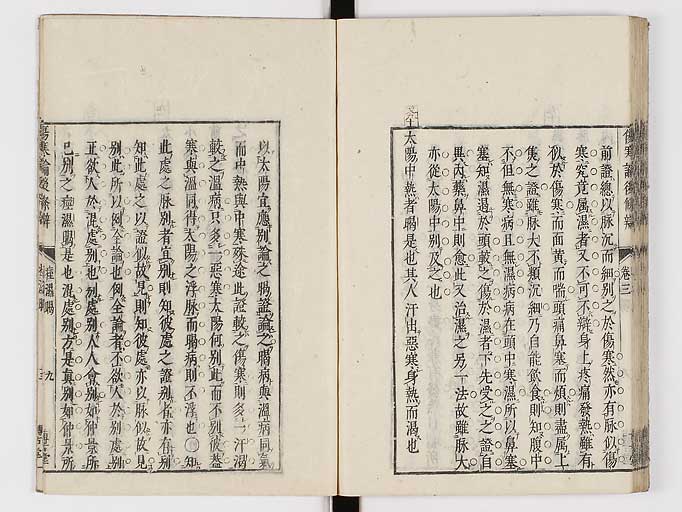 傷寒論後條辨
卷三
前證總以脉沉而細別之於傷寒然亦有脉似傷
寒究竟屬濕者又不可不辯身上疼痛發熱雖有
似於傷寒而面黃而喘頭痛鼻塞而煩則盡屬上
焦之證雖脉大不類沉細乃自能飲食則知腹中
不但無寒病且無濕病病在頭中寒濕所以鼻塞
塞知濕邊於頭較之傷於濕者下先受之之證自
異內藥鼻中則愈此又治濕之另一下法故雖脉大
亦從太陽中別及之也
太陽中熱者暍是也其人汗出惡寒身熱而渴也
以太陽宜應別論之暍證論之暍病與溫病同氣
而中熱與中寒殊途此證較之傷寒則多一汗渴
較之溫病只多一惡寒太陽何別此而不別彼蓋
寒與溫同得太陽之浮脉而暍病則不浮也○知
此處之脉別者宜別則知彼處之證別者亦有別
知此處之以證似故見則知彼處亦以脉似故見
別此所以例全論也例全論者不欲人於別處別
正欲人於混處別也別處別人人會別如仲景所
已別之痙濕暍是也混處別方是眞別如仲景所
傷寒論後條辨
痙濕暍
九